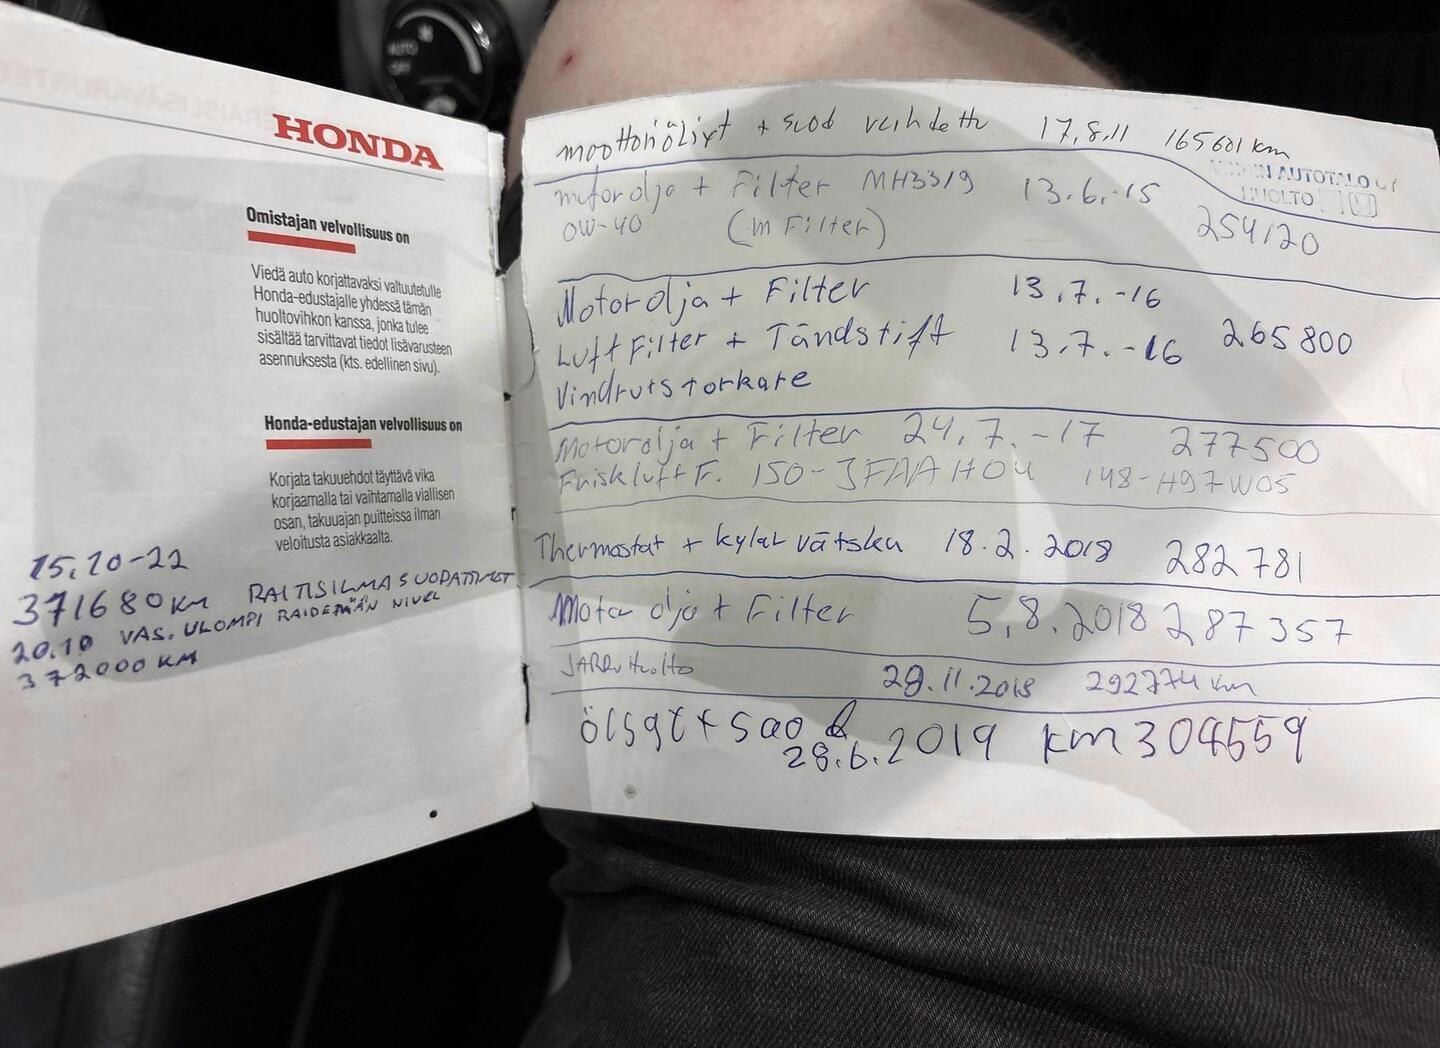 HONDA
Omistajan velvollisuus on
Viedä auto korjattavaksi valtuutetulle
Honda-edustajalle yhdessä tämän
huoltovihkon kanssa, jonka tulee
sisältää tarvittavat tiedot lisävarusteen
asennuksesta (kts. edellinen sivu).
Honda-edustajan velvollisuus on
Korjata takuuehdot täyttävä vika
korjaamalla tai vaihtamalla viallisen
osan, takuuajan puitteissa ilman
veloitusta asiakkaalta.
15.10-22
371680 KM RAITISILMASUODATTIMET
20.10 VAS. ULOMPI RAIDETANGON NIVEL
372000 KM
moottoriöljyt + suod vaihdettu 17.8.11 165601 km
AUTOTALO OY
HUOLTO
motorolja + Filter MH3319 13.6.-15
0W-40 (m Filter) 254120
Motorolja + Filter 13.7.-16
Luftfilter + Tändstift 13.7.-16 265800
Vindrutstorkare
Motorolja + Filter 24.7.-17 277500
Friskluft F. 150-JFAAH04 148-H97W05
Thermostat + kylarvätska 18.2.2018 282781
Motorolja + Filter 5.8.2018 287357
JARRUHuolto 29.11.2018 292774 km
28.6.2019 km 304559